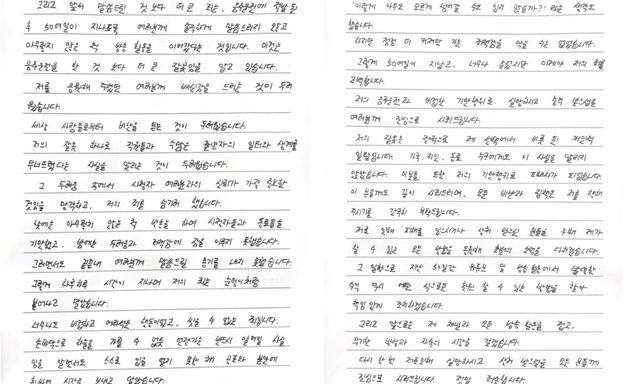 그리고 앞서 말씀드린 것 보다 더 큰 죄는, 음주운전이 적발된
후 50여일이 지나도록 여러분께 솔직하게 말씀드리지 않고
아무렇지 않은 척 방송 활동을 이어갔다는 것입니다. 이것은
음주운전을 한 것 보다 더 큰 잘못임을 알고 있습니다.
저를 응원해 주셨던 여러분께 배신감을 드리는 것이 두려
웠습니다.
세상 사람들로부터 비난을 듣는 것이 두려웠습니다.
저의 잘못 하나로 직원들과 수많은 출연자의 일터와 생계를
무너뜨렸다는 사실을 알리는 것이 두려웠습니다.
그 두려움 속에서 시청자 여러분과의 신뢰가 가장 중요한
것임을 망각하고, 저의 죄를 숨기려 했습니다.
낮에는 아무렇지 않은 척 방송을 하며 시청자들과 동료들을
기만했고, 밤에는 두려움과 죄책감에 잠을 이루지 못했습니다.
그러면서도 끝끝내 여러분께 말씀드릴 용기를 내지 못했습니다.
그렇게 하루하루 시간이 지나며 저의 죄는 눈덩이처럼
불어나고 말았습니다.
너무나도 비겁하고 어리석은 행동이었고, 씻을 수 없는 죄입니다.
하루하루 시간을 보내고 말았습니다.
'이렇게 아무도 모르게 넘어갈 수도 있지 않을까?' 라는 생각도
했습니다.
하지만 점점 더 커져만 가는 죄책감을 이길 수는 없었습니다.
그렇게 50여일이 지났고, 너무나 늦었지만 이제야 저의 죄를
고백합니다.
저의 음주운전과 비겁한 기만행위로 실망하시고 충격 받으셨을
여러분께 진심으로 사죄드립니다.
저의 잘못은 전적으로 제 선택에서 비롯된 저만의
일탈입니다. 가족, 지인, 동료 누구에게도 이 사실을 알리지
않았습니다. 이분들 또한 저의 기만행위로 피해자가 되었습니다.
이 분들께도 깊이 사죄드리며, 모든 비난과 질책은 저를 향해
주시기를 간곡히 부탁드립니다.
저로 인해 피해를 입으시거나 상처 받으신 분들을 위해 제가
할 수 있는 모든 방법을 동원해 최선의 노력을 다하겠습니다.
그 일환으로 지난 50일간 유튜브 및 방송 등에서 발생한
수익 역시 어떤 식으로든 환원 할 수 있는 방법을 찾아
책임 있게 조치하겠습니다.
그리고 앞으로는 제 채널과 모든 방송 활동을 접고,
무기한 반성과 자숙의 시간을 갖겠습니다.
다시 한 번 저로인해 실망하시고 상처 받으셨을 모든 분들께
진심으로 사죄드립니다. 정말 죄송합니다.